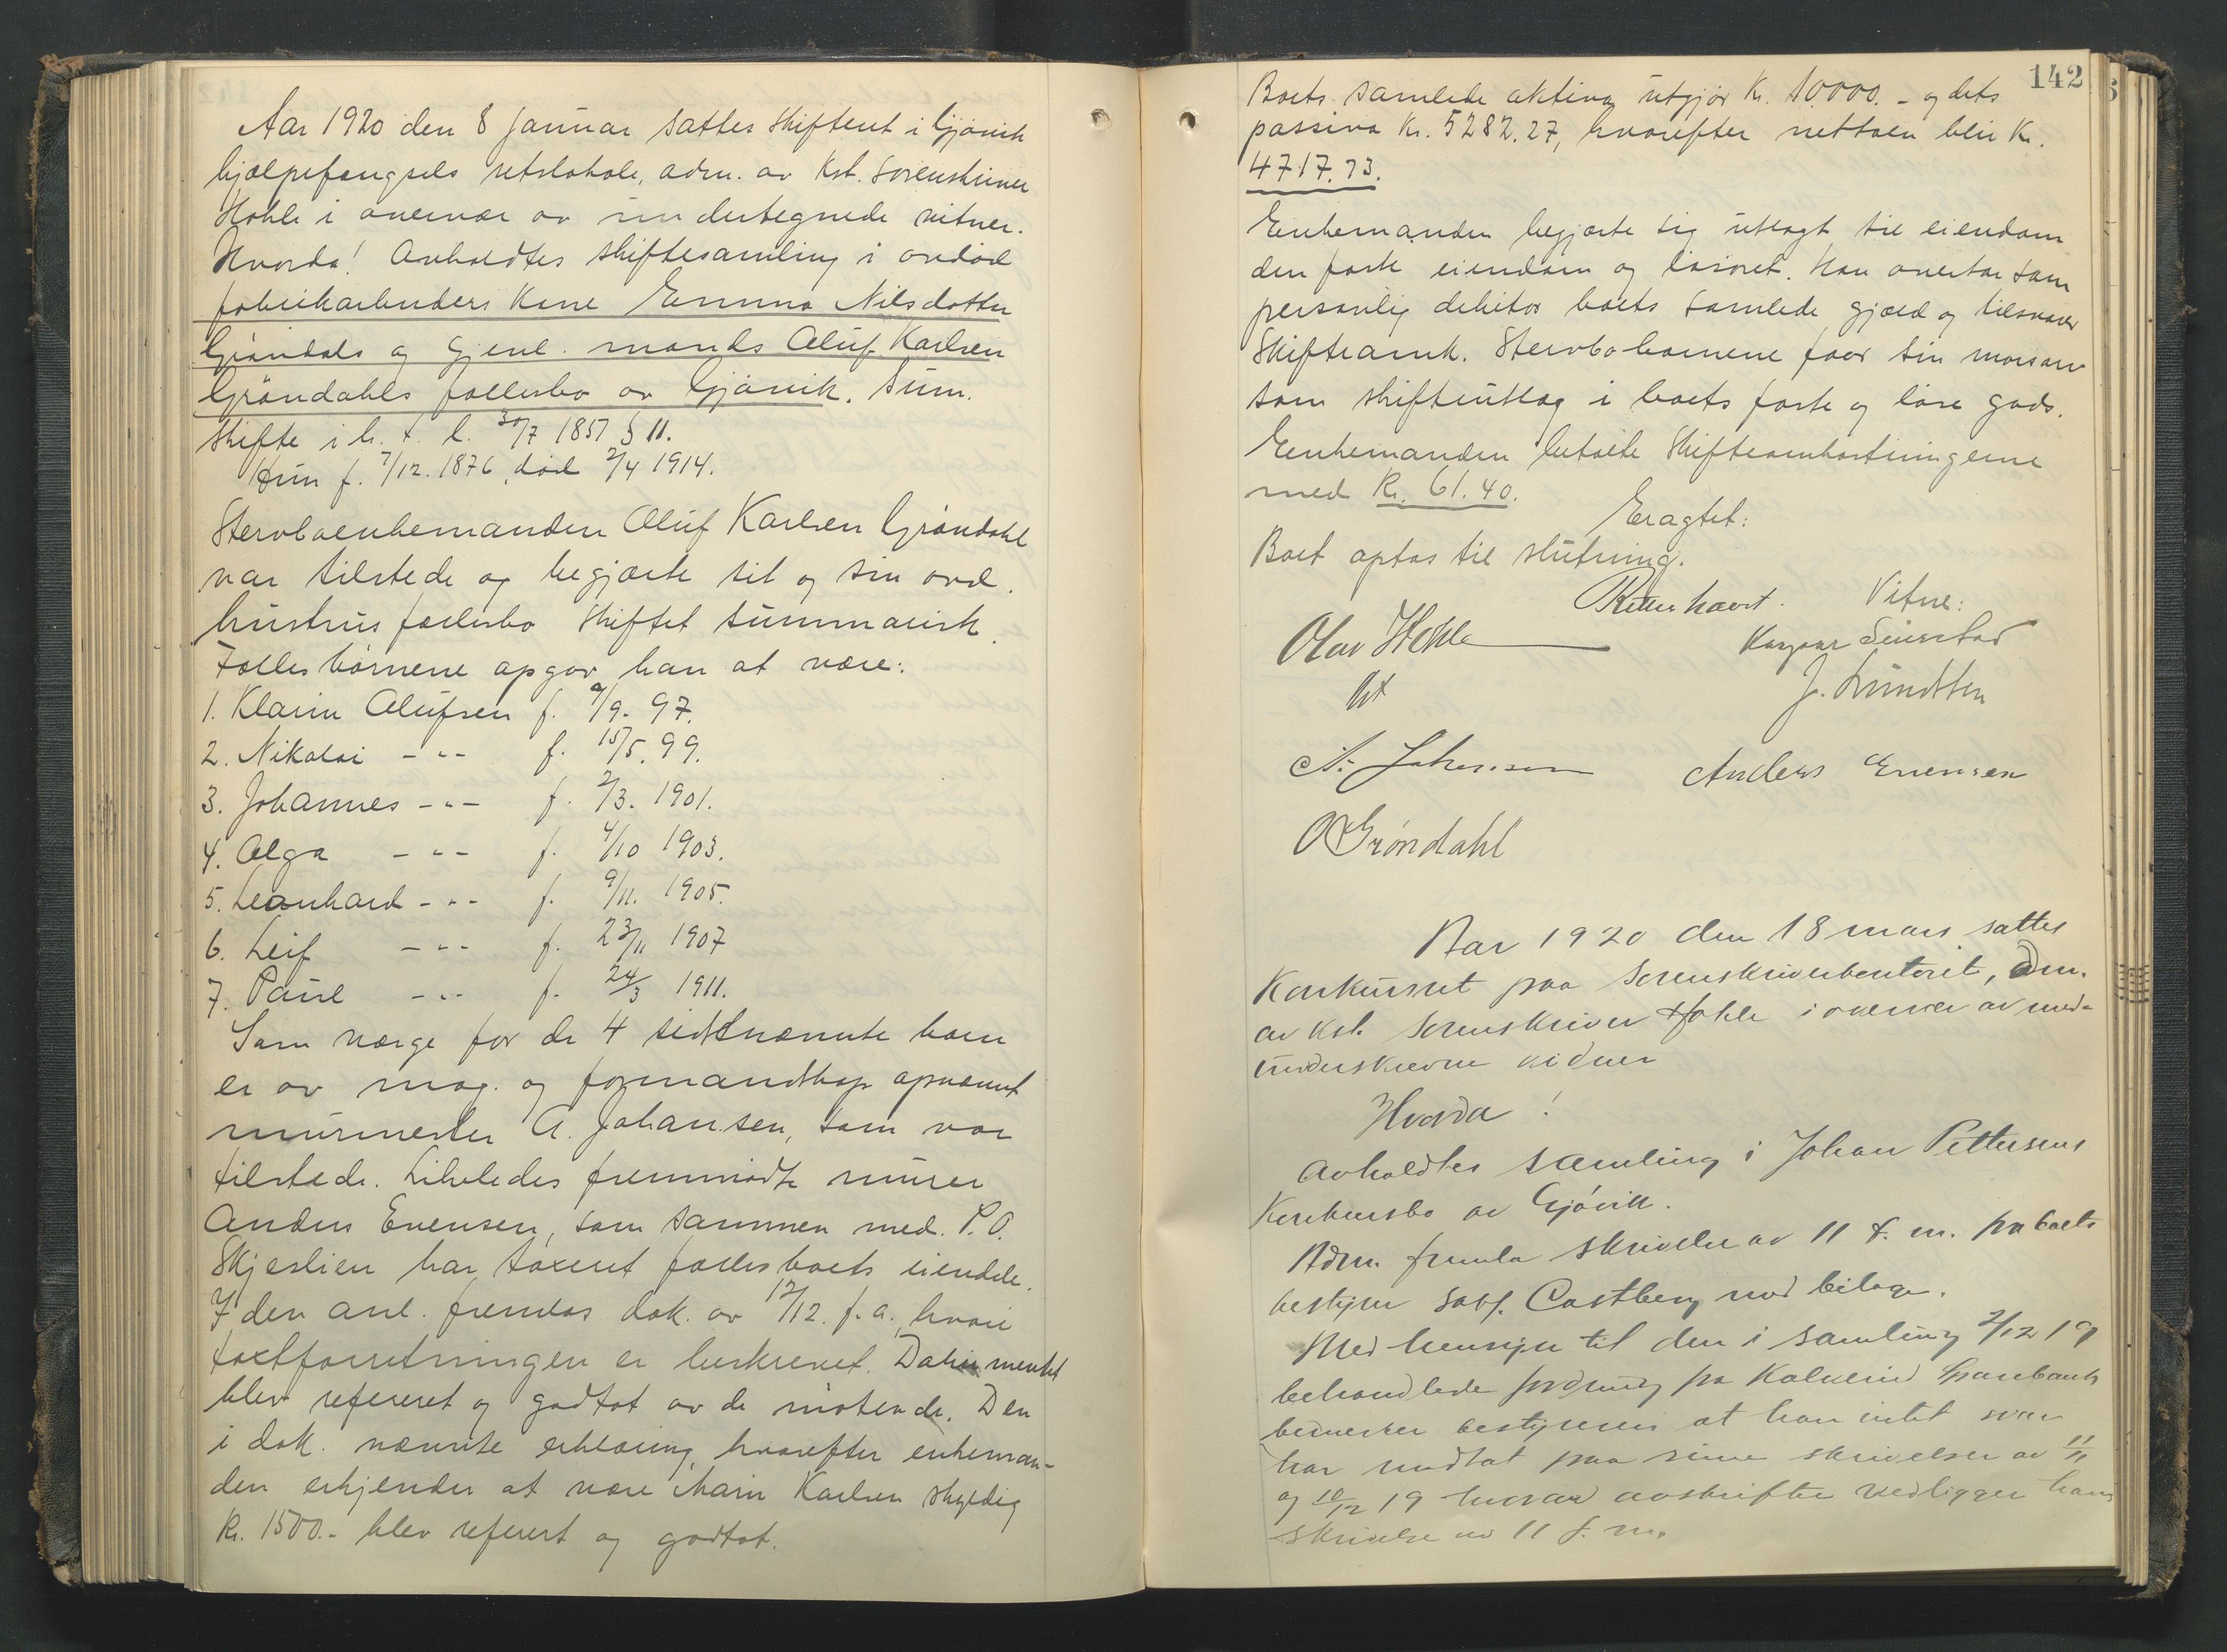 Aar 1920 den 8 januar sattes skifteret i Gjøvik
hjælpefængsels retslokale, adm. av kst. sorenskriver
Hohle i overvær av undertegnede vitner.
Hvorda! Avholdtes skiftesamling i avdød
fabrikarbeiders kone Emma Nilsdatter
Grøndals og gjenl. mands Oluf Karlsen
Grøndahls fællesbo av Gjøvik. Sum.
skifte i h. t. l. 30/7 1857 § 11.
Hun f. 7/12. 1876, død 2/4 1914.
Stervboenkemanden Oluf Karlsen Grøndahl
var tilstede og begjærte sit og sin avd.
hustrus fællesbo skiftet summarisk.
Fællesbørnene opgav han at være:
1. Klarin Olufsen f. /9. 97.
2. Nikolai - " - f. 15/5. 99.
3. Johannes - " - f. 2/3. 1901.
4. Olga - " - f. 4/10 1903.
5. Leonhard - " - f. 9/11. 1905.
6. Leif - " - f. 23/11 1907
7. Paul - " - f. 24/3 1911.
Som værge for de 4 sidstnævnte barn
er av mag. og formandskap opnævnt
murmester A. Johansen, som var
tilstede. Likeledes fremmødte murer
Anders Evensen, som sammen med P. O.
Skjeslien har taxeret fællesboets eiendele.
I den anl. fremlas dok. av 12/12. f. a., hvori
taxtforretningen er beskrevet. Dokumentet
blev refereret og godtat av de møtende. Den
i dok. nævnte erklæring, hvorefter enkeman-
den erkjender at være Karlsen skyldig
Kr. 1500.- blev referert og godtat.
142
Boets samlede aktiva utgjør Kr. 10.000.- og dets
passiva Kr. 5282.27, hvorefter nettoen blir Kr.
4717.73.
Enkemanden begjærte sig utlagt til eiendom
den faste eiendom og løsøret. Han overtar som
personlig debitor boets samlede gjæld og tilsvarer
Skifteomk. Stervbobarnene faar sin morsarv
som skifteutlæg i boets faste og løse gods.
Enkemanden betalte skifteomkostningerne
med Kr. 61.40.
Eragtet:
Boet optas til slutning.
Retten hævet. Vitne:
Olav Hohle Kaspar Seierstad
kst J. Lundsten
A. Johansen Anders Evensen
O Grøndahl
Aar 1920 den 18 mars sattes
Konkursret paa Sorenskriverkontoret, adm.
av kst. sorenskriver Hohle i overvær av med-
underskrevne vidner
Hvorda!
Avholdtes samling i Johan Pettersens
Konkursbo av Gjøvik.
Adm. fremla skrivelse av 11 d. m. fra boets
bestyrer sakf. Castberg med bilage.
Med hensyn til den i samling 2/12 19
behandlede fordring fra Kolvereid Sparebank
bemerker bestyreren at han intet svar
har mottat paa sine skrivelser av 11/11
og 10/12 19 hvorav avskrifter vedligger hans
skrivelse av 11 d. m.